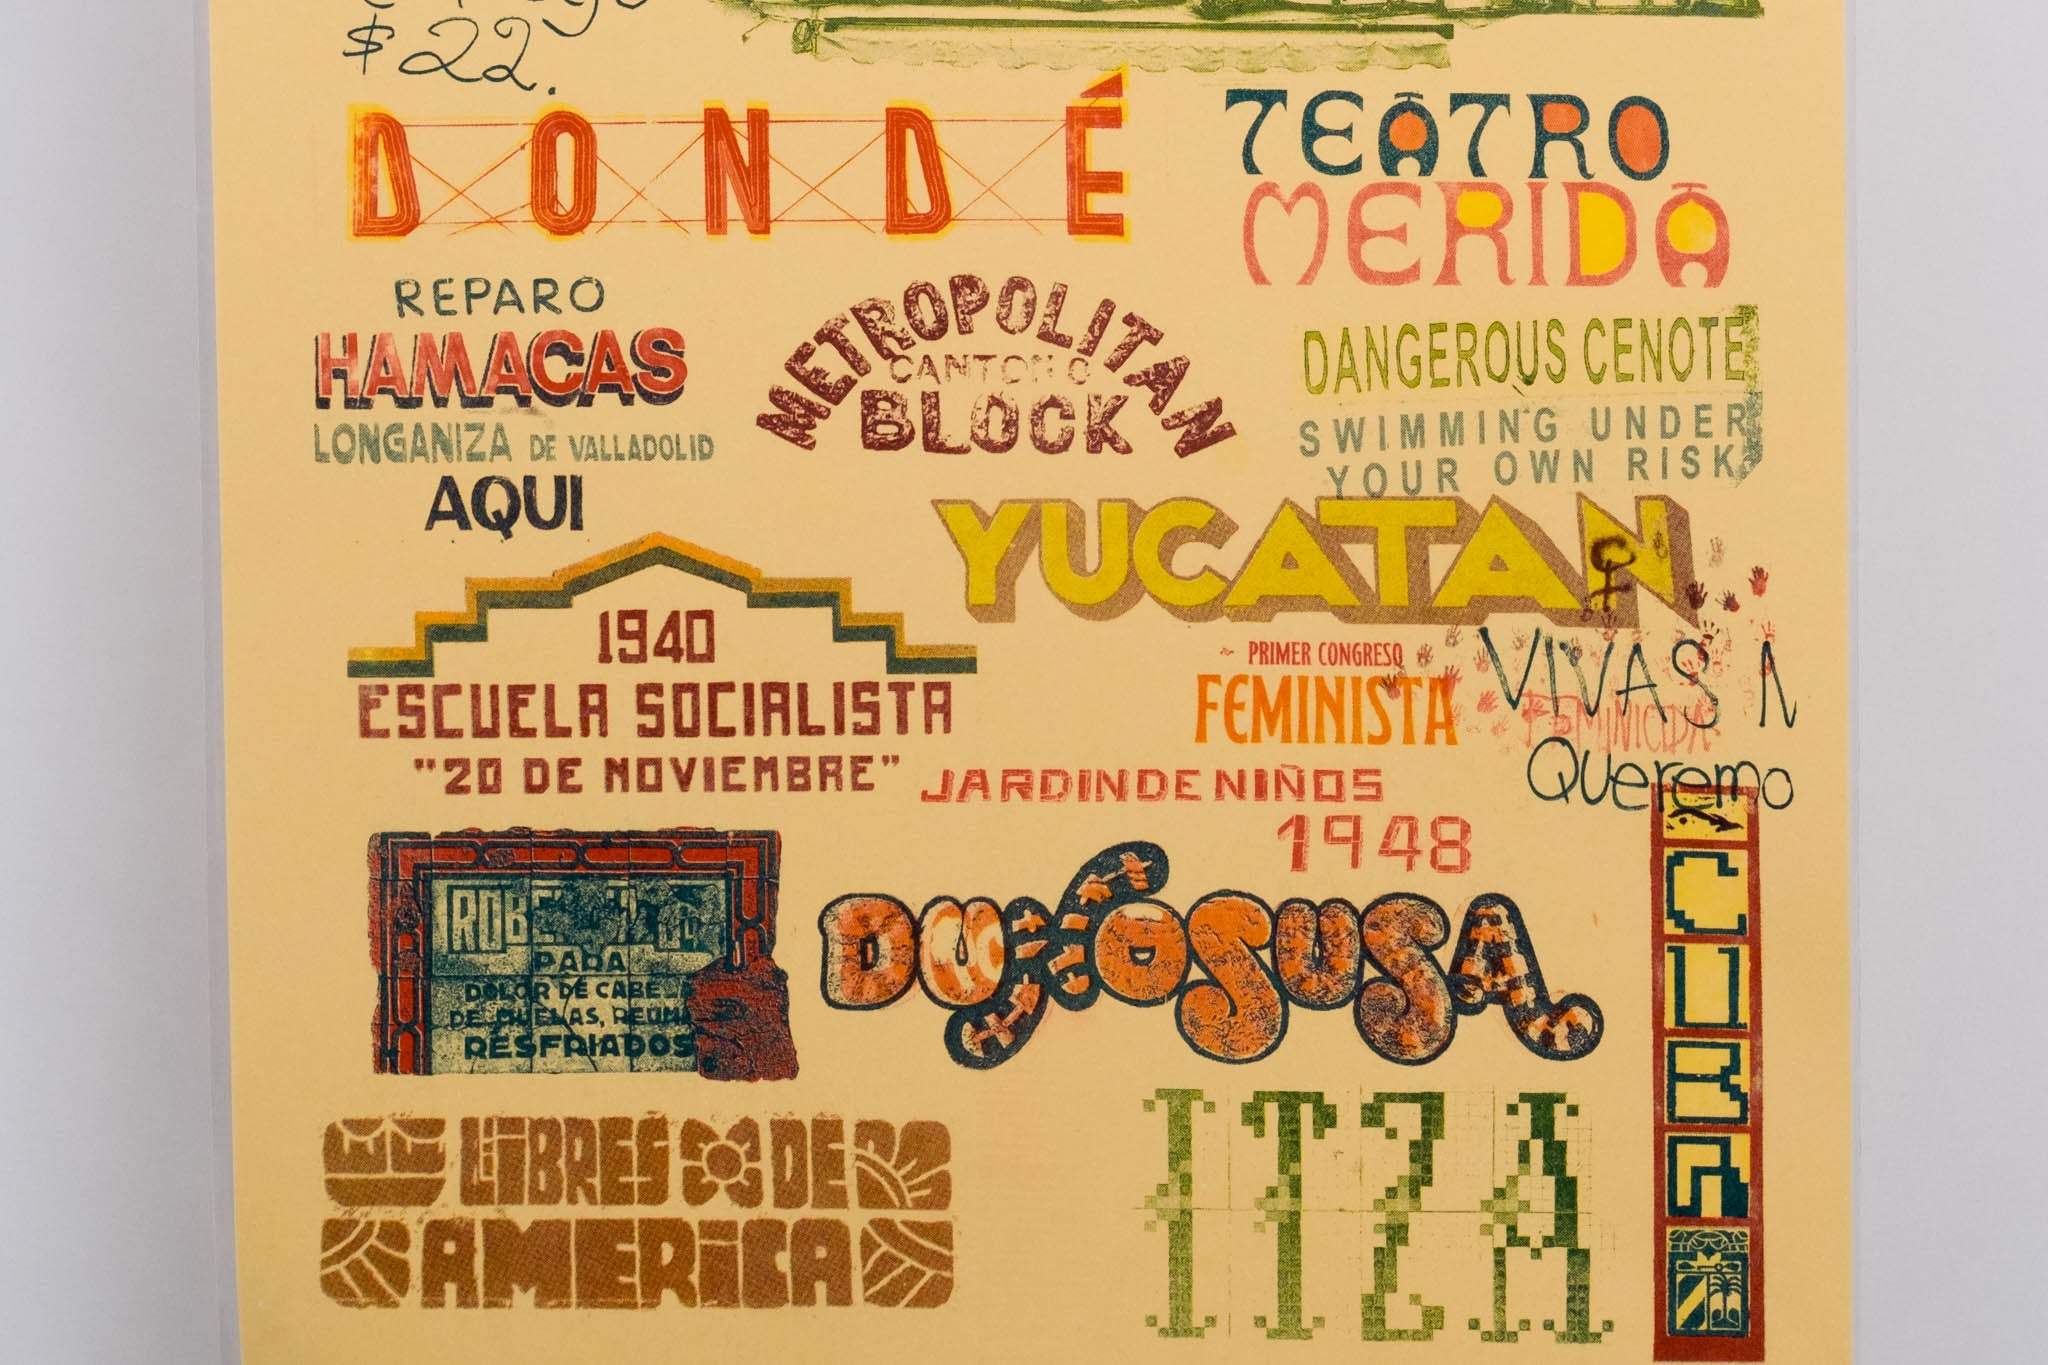 $22.
DONDÉ
TEATRO
MERIDA
REPARO
HAMACAS
LONGANIZA DE VALLADOLID
AQUI
METROPOLITAN
CANTON
BLOCK
DANGEROUS CENOTE
SWIMMING UNDER
YOUR OWN RISK
YUCATAN
1940
ESCUELA SOCIALISTA
"20 DE NOVIEMBRE"
~ PRIMER CONGRESO
FEMINISTA
VIVAS N
FEMINICIDA
Queremo
JARDIN DE NIÑOS
1948
PARA
DOLOR DE CABE
DE MUELAS, REUMA
RESFRIADOS
DULOSUSA
CUBA
LIBRES DE
AMERICA
ITZA